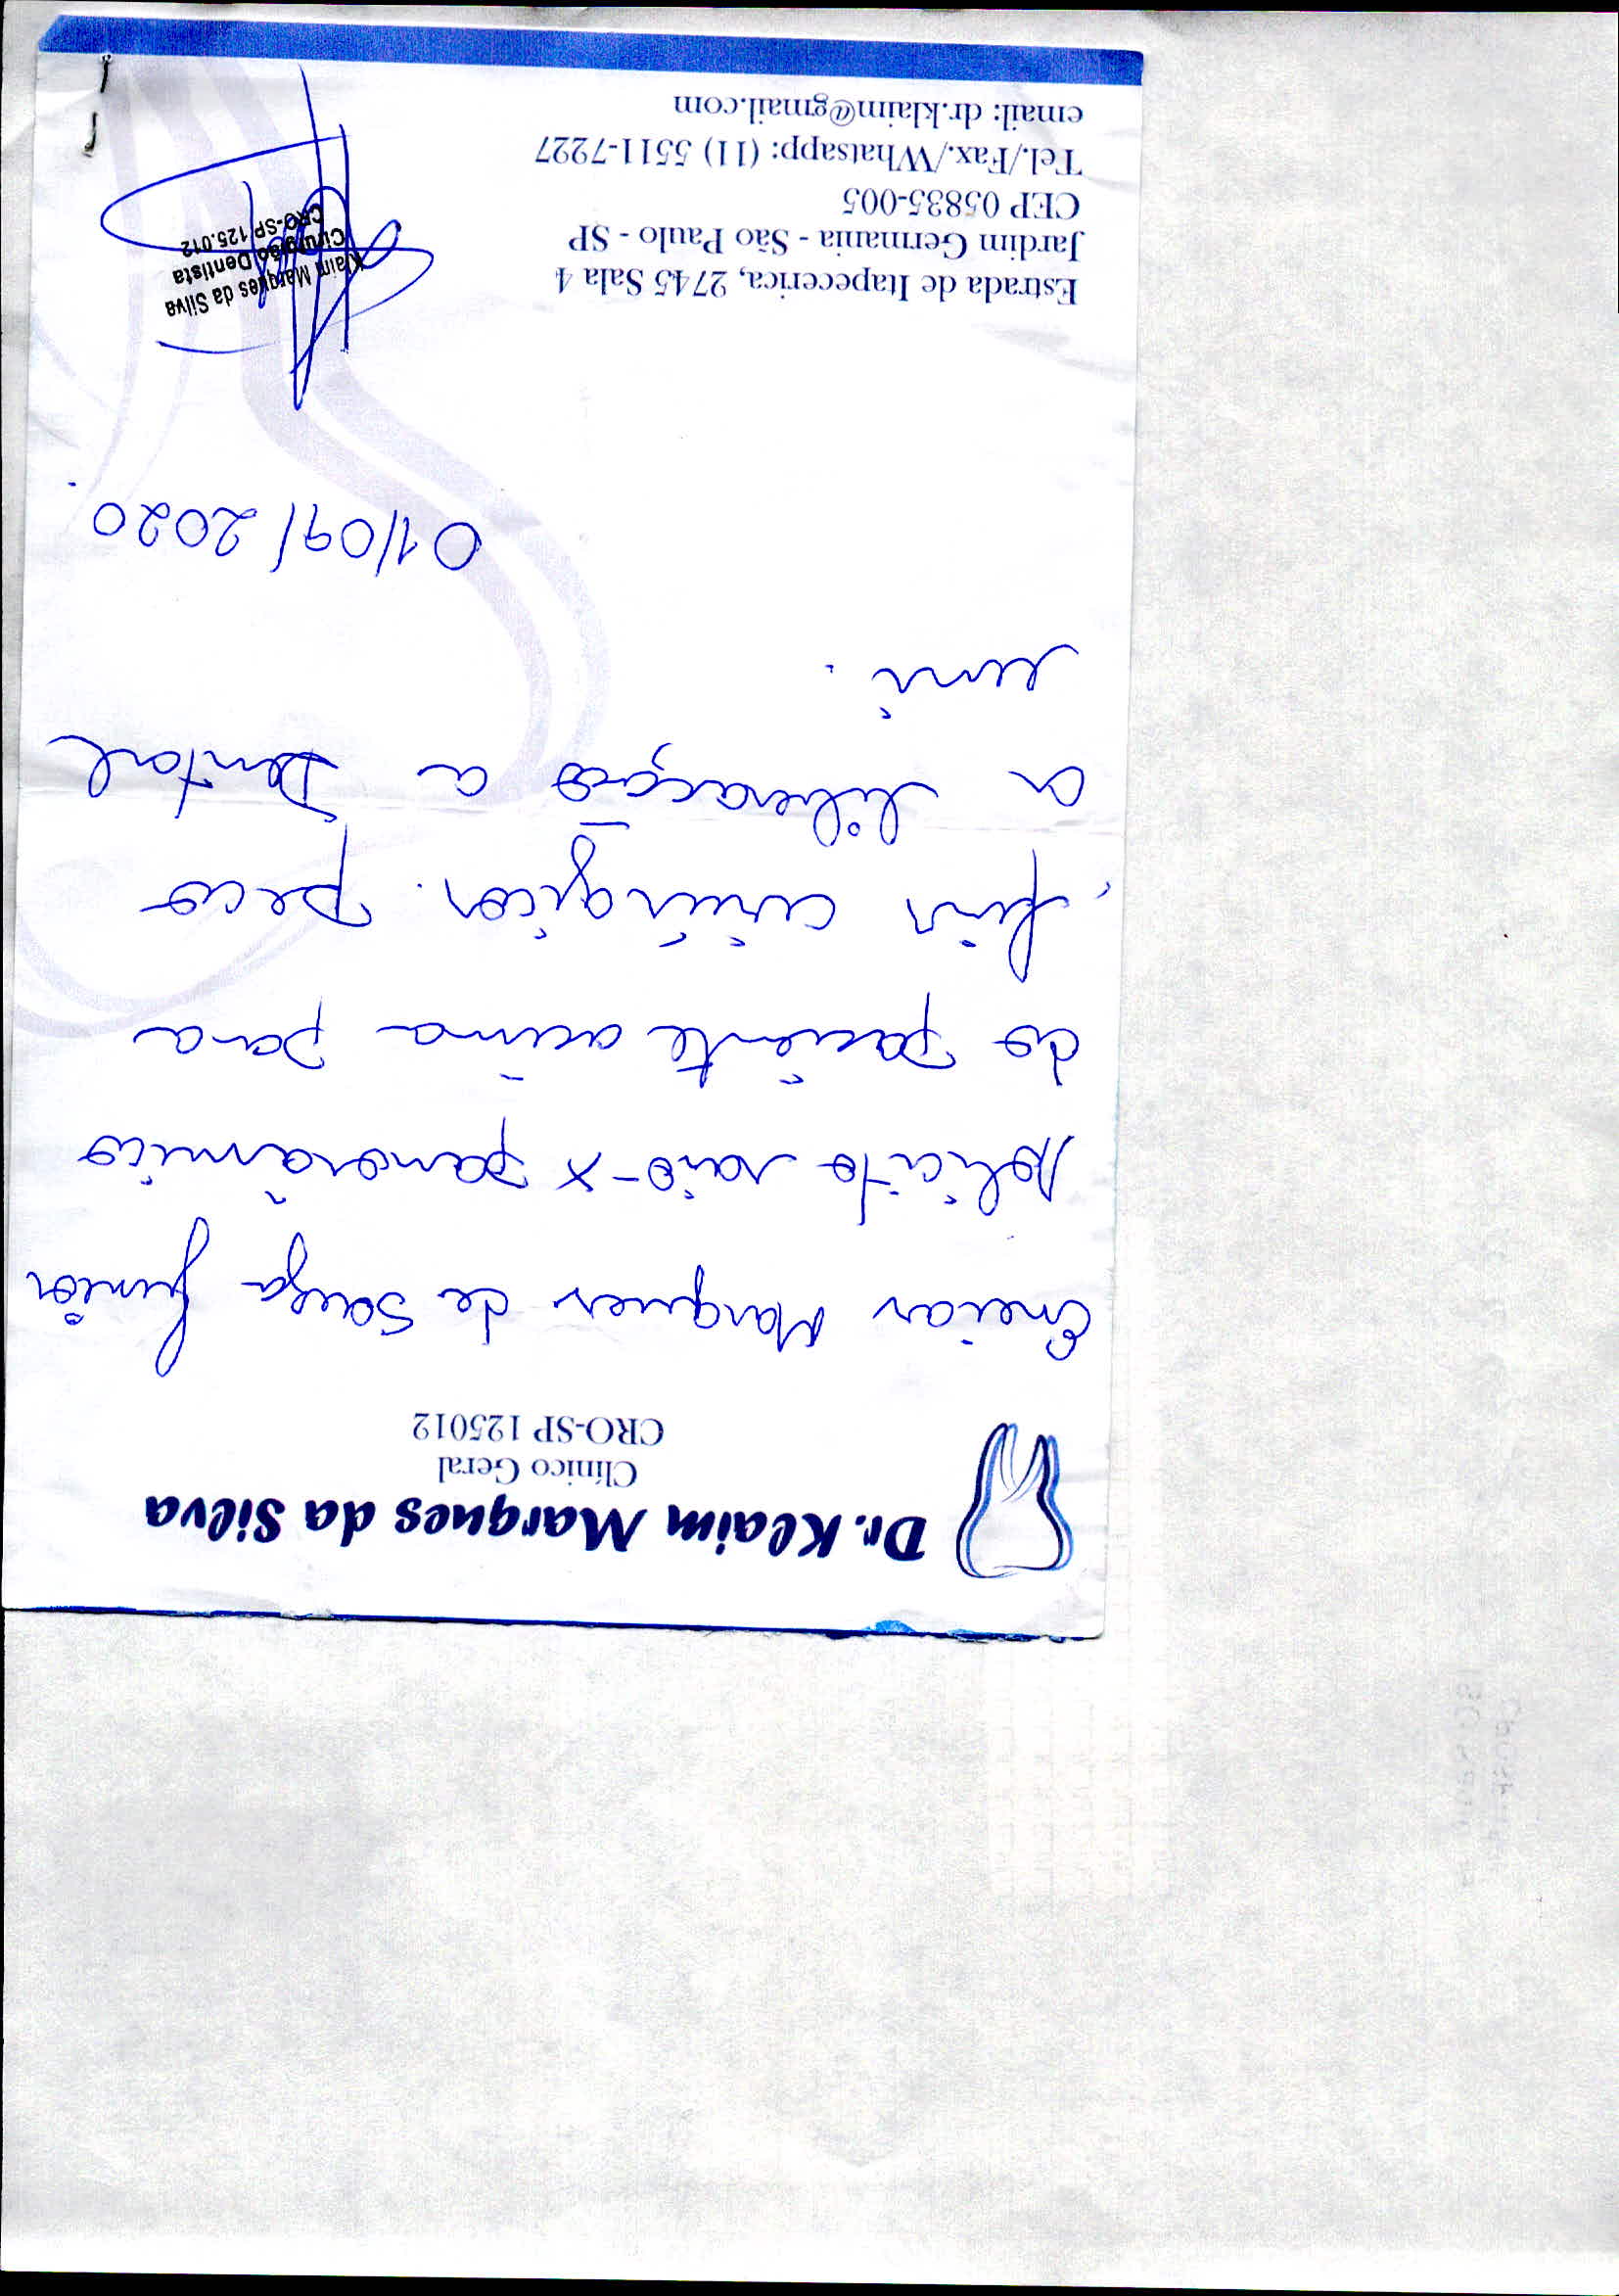 Dr. Klaim Marques da Silva
Clínico Geral
CRO-SP 125012
Marques de Souza Junior
Solicito raio-x panorâmico
do paciente acima para
fins cirúrgicos. Peço
a liberação a Dental
uni.
01/09/2020
Klaim Marques da Silva
Cirurgião Dentista
CRO-SP 125.012
Estrada de Itapecerica, 2745 Sala 4
Jardim Germania - São Paulo - SP
CEP 05835-005
Tel./Fax./Whatsapp: (11) 5511-7227
email: dr.klaim@gmail.com